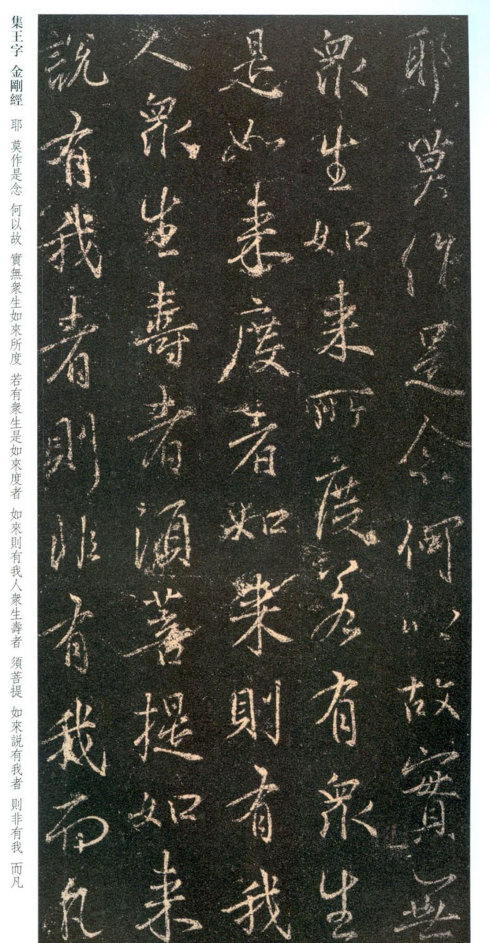 耶莫作是念何以故實無
眾生如來所度若有眾生
是如來度者如來則有我
人眾生壽者須菩提如來
說有我者則非有我而凡
集王字 金剛經 耶 莫作是念 何以故 實無衆生如來所度 若有衆生是如來度者 如來則有我人衆生壽者 須菩提 如來説有我者 則非有我 而凡